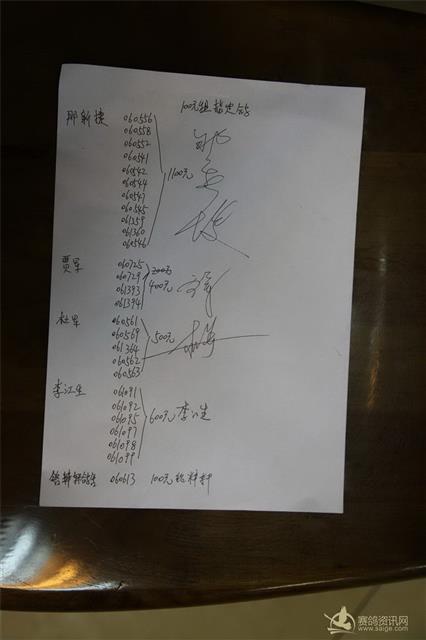 100元组指定鸽
邢新捷 060556
060558
060552
060541
060542 1100元
060544
060547
060545
061359
061360
060546
贾军 060725 200元
060729 400元
061393
061394
杜军 060561
060569 500元
061364
060562
060563
李江生 061091
061092
061095 600元 李江生
061097
061098
061099
060613 100元
赛鸽资讯网
www.saige.com